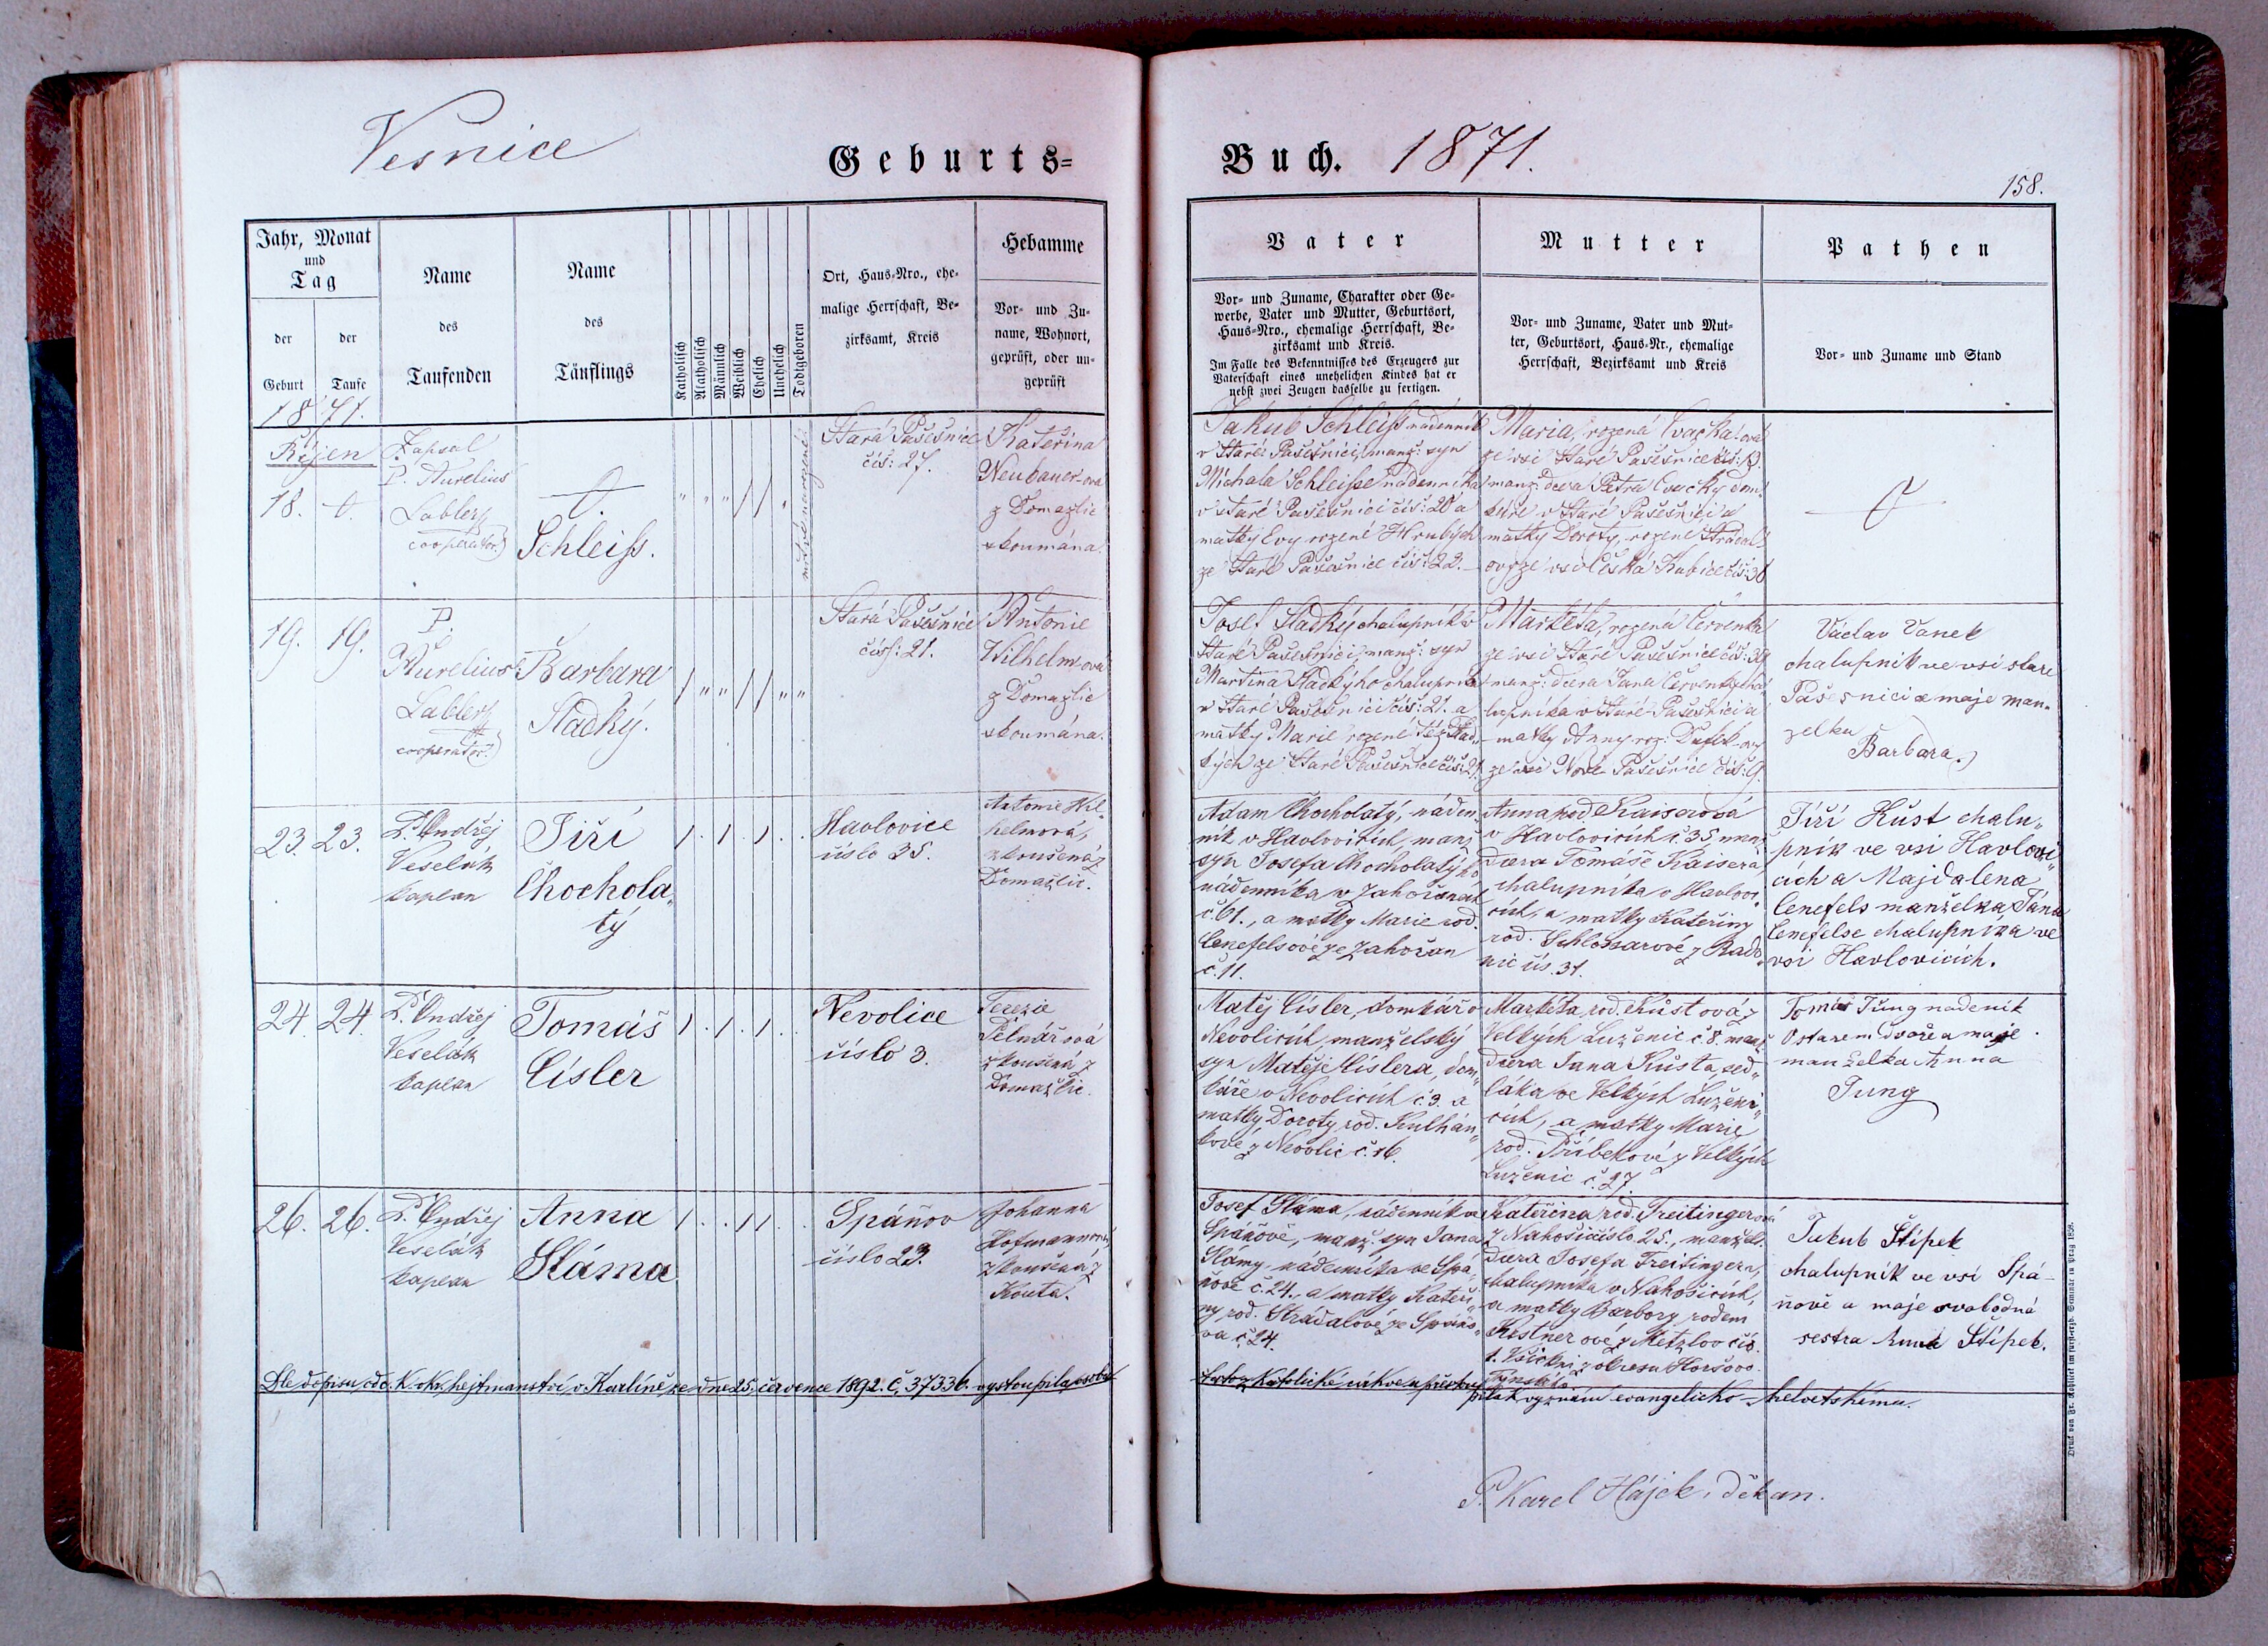 Vesnice
Geburts=
Buch. 1871.
158.
Jahr, Monat
und
Tag
der
Geburt
der
Taufe
Name
des
Taufenden
Name
des
Täuflings
Katholisch
Akatholisch
Männlich
Weiblich
Ehelich
Unehelich
Todtgeboren
Ort, Haus-Nro., ehe-
malige Herrschaft, Be-
zirksamt, Kreis
Hebamme
Vor- und Zu-
name, Wohnort,
geprüft, oder un-
geprüft
Vater
Vor- und Zuname, Charakter oder Ge-
werbe, Vater und Mutter, Geburtsort,
Haus-Nro., ehemalige Herrschaft, Be-
zirksamt und Kreis.
Im Falle des Bekenntnisses des Erzeugers zur
Vaterschaft eines unehelichen Kindes hat er
nebst zwei Zeugen dasselbe zu fertigen.
Mutter
Vor- und Zuname, Vater und Mut-
ter, Geburtsort, Haus-Nr., ehemalige
Herrschaft, Bezirksamt und Kreis
Pathen
Vor- und Zuname und Stand
1871.
Říjen
18.
Zapsal
P. Aurelius
Labler
cooperator
Schleiss.
mrtvěnarozené
Stará Pasešnice
čís: 27.
Kateřina
Neubauer-ova
z Domažlic
zkoumána.
Jakub Schleiss nádenník
v Staré Pasešnici, manž: syn
Michala Schleisse nádenníka
v staré Pasešnici čís: 20 a
matky Evy rozené Hrubých
ze Staré Pasešnice čís: 22.
Maria, rozená Cvačka-ová
ze vsi Staré Pasešnice čís: 13.
manž: dcera Petra Cvačky dom-
káře v Staré Pasešnici a
matky Doroty, rozené Strádal-
ovy ze vsi Česká Kubice čís: 36
19. 19.
P.
Aurelius
Labler
cooperator
Barbara
Sladký.
Stará Pasešnice
čísl: 21.
Antonie
Wilhelm-ova
z Domažlic
zkoumána.
Josef Sladký chalupník v
Staré Pasešnici, manž: syn
Martina Sladkýho chalupníka
v Staré Pasešnici čís: 21. a
matky Marie rozené též Slad-
kých ze Staré Pasešnice čís: 21.
Markéta, rozená Červenka
ze vsi Staré Pasešnice čís: 39
manž: dcera Jana Červenky cha-
lupníka v Staré Pasešnici a
matky Anny roz: Dufek-ovy
ze vsi Nové Pasešnice čís: 9.
Václav Vanek
chalupník ve vsi stare
Pasesnici a maje man-
zelku
Barbara
23. 23.
P. Ondřej
Veselák
kaplan
Jiří
Chochola-
tý
Havlovice
číslo 35.
Antonie Wil-
helmová,
zkoušená z
Domažlic.
Adam Chocholatý, náden-
ník v Havlovicích, manž.
syn Josefa Chocholatýho
nádenníka v Zahořanech
č. 61., a matky Marie rod.
Cenefelsové ze Zahořan
č. 11.
Anna rod. Kaiserová
v Havlovicích č. 35 manž.
dcera Tomáše Kaisera,
chalupníka v Havlovi-
cích, a matky Kateřiny
rod. Schlossarové z Rado-
nic čís. 31.
Jiří Kůst chalu-
pník ve vsi Havlovi-
cích a Majdalena
Cenefels manželka Jána
Cenefelse chalupníka ve
vsi Havlovicích.
24. 24.
P. Ondřej
Veselák
kaplan
Tomáš
Císler
Nevolice
číslo 3.
Terezie
zkoušená z
Domažlic.
Matěj Císler, domkář v
Nevolicích, manželský
syn Matěje Císlera, dom-
káře v Nevolicích č. 9. a
matky Doroty rod. Kulhán-
kové z Nevolic č. 16.
Markéta rod. Kůstová z
Velkých Luženic č. 8. manž.
dcera Jana Kůsta, sed-
láka ve Velkých Luženi-
cích, a matky Marie
rod. Příbekové z Velkých
Luženic č. 27.
Tomáš Jung nadeník
v starem dvoře a maje
manželka Anna
Jung
26. 26.
P. Ondřej
Veselák
kaplan
Anna
Sláma
Spáňov
číslo 23.
Johanna
Hofmannová,
zkoušená z
Kouta.
Josef Sláma, nádenník ve
Spáňově, manž. syn Jana
Slámy, nádenníka ve Spá-
ňově č. 24., a matky Kateři-
ny rod. Strádalové ze Spáňo-
va č. 24.
Kateřina rod. Treitingerová
z Nahošic číslo 25., manžel.
dcera Josefa Treitingera,
chalupníka v Nahošicích,
a matky Barbory rodem
Kastnerové z Metzlov čís.
1. Všickni z okresu Horšovo-
Týnského
Jakub Štípek
chalupník ve vsi Spá-
ňově a maje svobodná
sestra Anna Štípek.
Dle dopisu cís. K. okr. hejtmanství v Karlíně ze dne 25. července 1892. č. 37336. vystoupila osoba
tato z katolické církve a přestou-
pila k vyznání evangelicko-helvetskému.
P. Karel Hájek, děkan.
Druck von Fr. Rohliček im fürst-erzb. Seminär in Prag 1858.